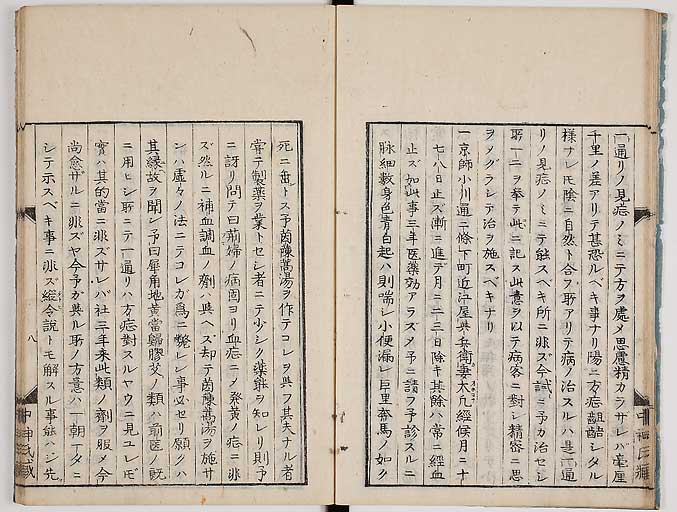 一通リノ見症ノミニテ方ヲ處メ思慮精カラサレハ毫厘
千里ノ差アリテ甚恐ルベキ事ナリ陽ニ方症齟齬シタル
様ナレモ陰ニ自然ト合フ所アリテ病ノ治スルハ是一通
リノ見症ノミニテ能スベキ所ニ非ズ今試ニ予カ治セシ
所一二ヲ挙テ此ニ記ス此意ヲ以テ病客ニ對シ精密ニ思
ヲメグラシテ治ヲ施スベキナリ
一京師小川通二條下町近江屋與兵衛妻太凢經候月ニ十
七八日止ズ漸ニ進テ月ニ二三日除キ其餘ハ常ニ經血
止ズ如此事三年医藥効アラズメ予ニ請フ予診スルニ
脉細數身色青白起ハ則喘シ小便漏レ巨里奔馬ノ如ク
死ニ垂トス予茵蔯蒿湯ヲ作テコレヲ與フ其夫ナル者
嘗テ製藥ヲ業トセシ者ニテ少シク藥能ヲ知レリ則予
ニ訝リ問テ曰荊婦ノ病固ヨリ血症ニメ發黄ノ症ニ非
ズ然ルニ補血調血ノ劑ハ與ヘズ却テ茵蔯蒿湯ヲ施サ
ンハ虚々ノ法ニテコレガ為ニ斃レン事必セリ願クハ
其縁故ヲ聞ン予曰犀角地黄當歸膠艾ノ類ハ前医ノ既
ニ用ヒシ所ニテ一通リハ方症對スルヤウニ見ユレモ
實ハ其的當ニ非ズサレバ社三年来此類ノ劑ヲ服メ今
尚愈ザルニ非ズヤ今予カ與ル所ノ方意ハ一朝一夕ニ
シテ示スベキ事ニ非ズ縦令説トモ解スル事能ハジ先
八
中神氏蔵
中神氏蔵